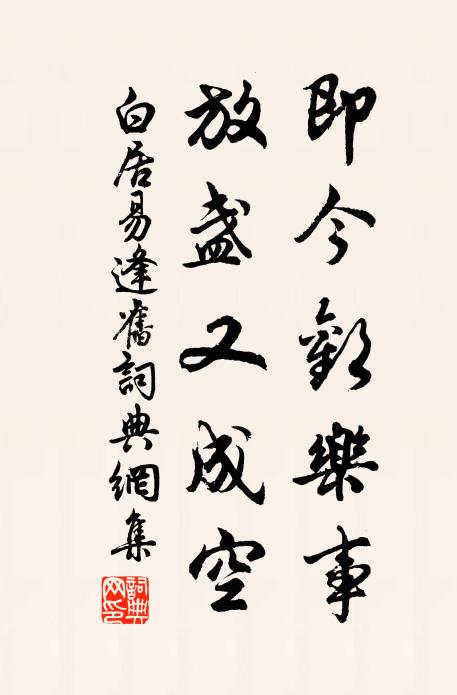 即今歡樂事
放盞又成空
白居易逢舊詞典網集
詞典网印